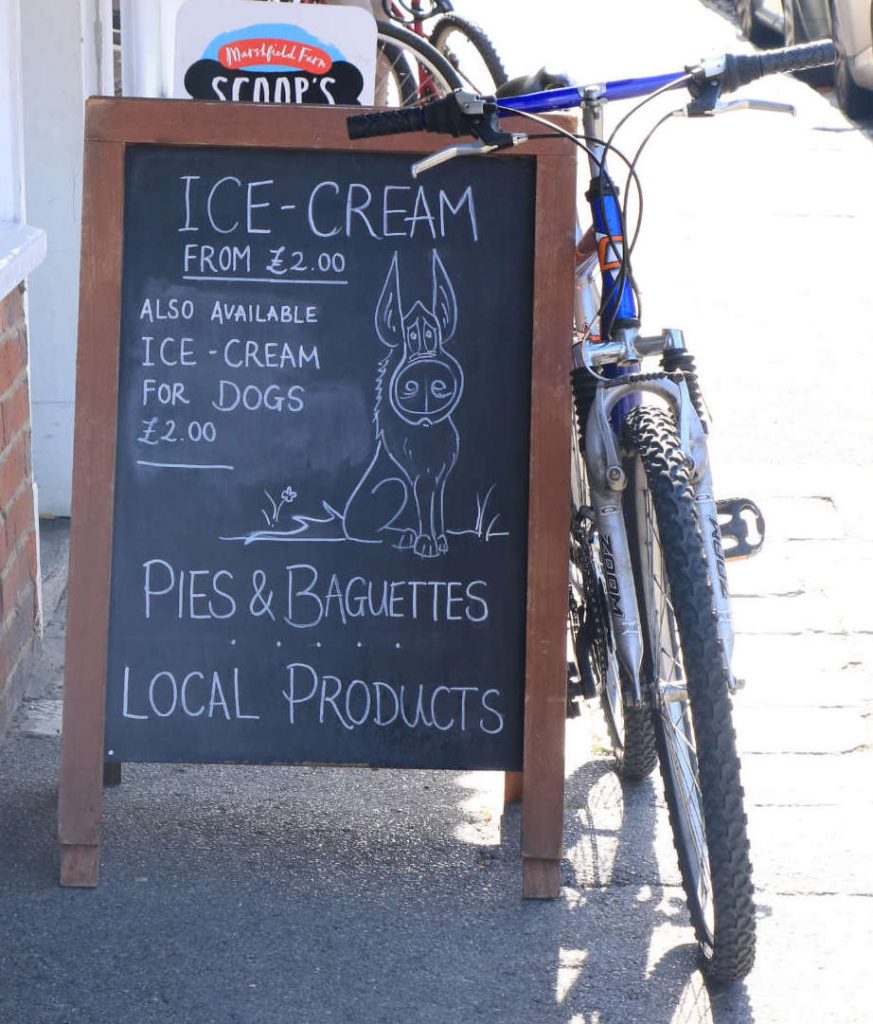 Marshfield Farm
SCOOP'S
ICE-CREAM
FROM £2.00
ALSO AVAILABLE
ICE-CREAM
FOR DOGS
£2.00
PIES & BAGUETTES
LOCAL PRODUCTS
ZOOM